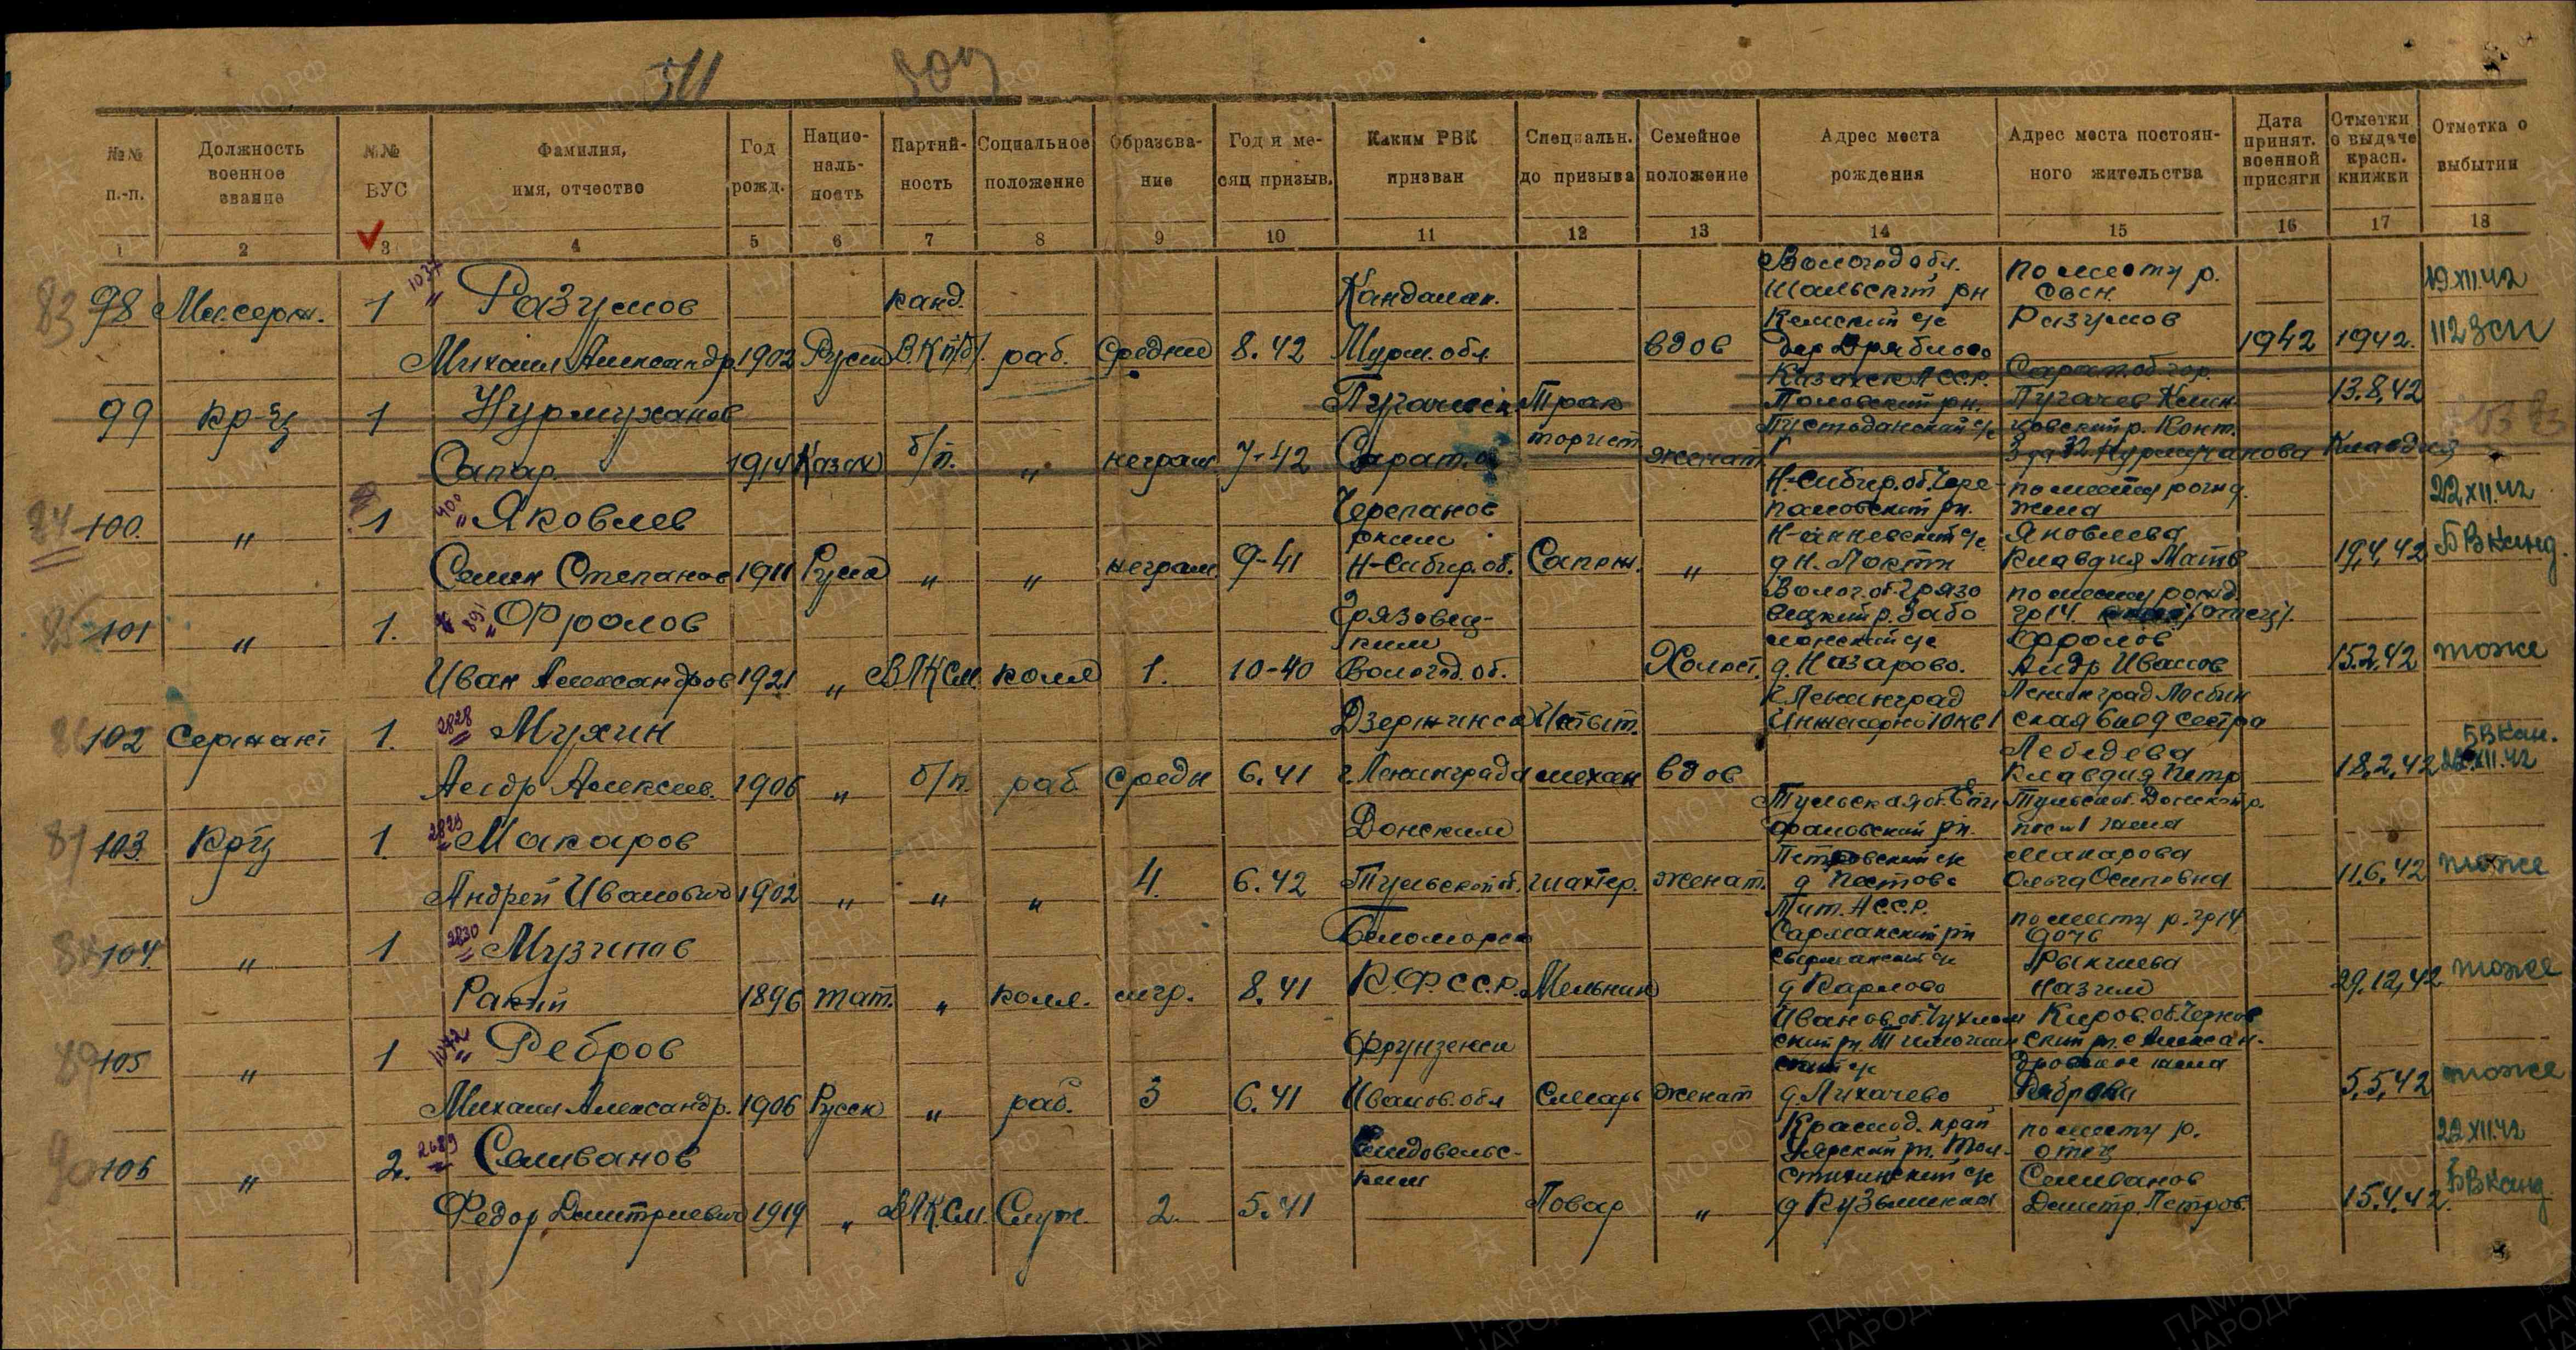 511 809
№№ п.-п.
Должность военное звание
№№ ВУС
Фамилия, имя, отчество
Год рожд.
Нацио-наль-ность
Партий-ность
Социальное положение
Образова-ние
Год и ме-сяц призыв.
Каким РВК призван
Специальн. до призыва
Семейное положение
Адрес места рождения
Адрес места постоян-ного жительства
Дата принят. военной присяги
Отметки о выдаче красн. книжки
Отметка о выбытии
1 2 3 4 5 6 7 8 9 10 11 12 13 14 15 16 17 18
83 98 Мл.серж. 1 1037 Разумов канд. Кандалак. Вологод обл. по месту р. 19 XII.42
Шальский рн
Кемский с/с Разумов
Михаил Александр. 1902 Русск В.К.П(б). раб. Средне 8.42 Мурм. обл вдов 1942 1942. 112 ЗСП
Казахск АССР. Сарат. об. гор.
99 кр-ец 1 Нурмуханов Пугачевск Трак Пугачев 13.8.42
Сапар 1914 Казах б/п. " неграм 7-42 Сарат. о торист женат Нурмуханова Клавдия
Н-Сибир. об. Чере- по месту рожд.
84 100. " 1 400 Яковлев Черепанов пановский рн. жена 22 XII.42
ским Яковлева
Семен Степанов 1911 Русск " " неграм 9-41 Н-Сибир. об. Сапож. " д Н. Локти Клавдия Матв 19.4.42 БВканд.
Волог. об. Грязо по месту рожд
85 101 " 1. 891 Фролов Грязовец- вецкий р. Забо гр 14. (отец).
ким Фролов
Иван Александров 1921 " ВЛКСМ колх 1. 10-40 Вологод. об. Холост. д. Назарово. Алдр Иванов 15.2.42 тоже
г. Ленинград Ленинград
86 102 Сержант 1. 2828 Мухин Дзержинск Испыт. ская 6 кв 9 сестра
Лебедева БВкан.
Алдр Алексеев. 1906 " б/п. раб. средн 6.41 г. Ленинграда механ вдов Клавдия Петр 18.2.42 22.XII.42
Тульская об. Епи Тульск об. Донской р.
87 103. Кр-ц 1. 2829 Макаров Донским фановский рн. пос 1 жена
Петровский с/с Макарова
Андрей Иванович 1902 " " " 4. 6.42 Тульской об. шахтер. женат. Ольга Осиповна 11.6.42 тоже
Тат. АССР. по месту р. гр 14
88 104. " 1 2830 Музипов Беломорск Сармановский рн дочь
Ракип 1896 тат. " колх. 8.41 К.Ф.С.С.Р. Мельник д Карлово Назим 29.12.42 тоже
Иванов. об. Чухлом Киров. об.
89 105 " 1 1042 Ребров Фрунзенск ский рн.
жена
Михаил Александр. 1906 Русск " раб. 3 6.41 Иванов. обл Слесарь женат д. Лихачево Реброва 5.5.42 тоже
Краснод. край по месту р.
90 106 " 2. 2689 Селиванов отец 22 XII.42
ким Селиванов
Федор Дмитриевич 1919 " ВЛКСМ Служ. 2. 5.41 Повар " Дмитр. Петров. 15.4.42. БВканд